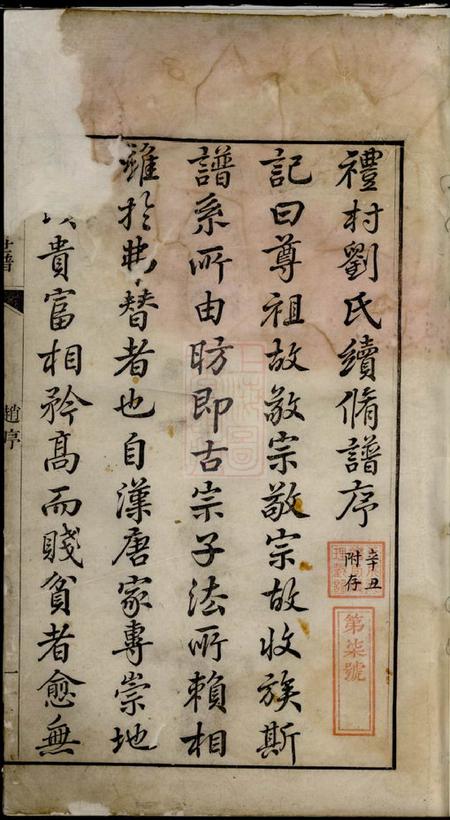 禮村劉氏續脩譜序
辛丑
附存
第柒號
記曰尊祖故敬宗敬宗故收族斯
譜系所由昉即古宗子法所賴相
維於勿替者也自漢唐家專崇地
貴富相矜高而賤貧者愈無
趙序
一